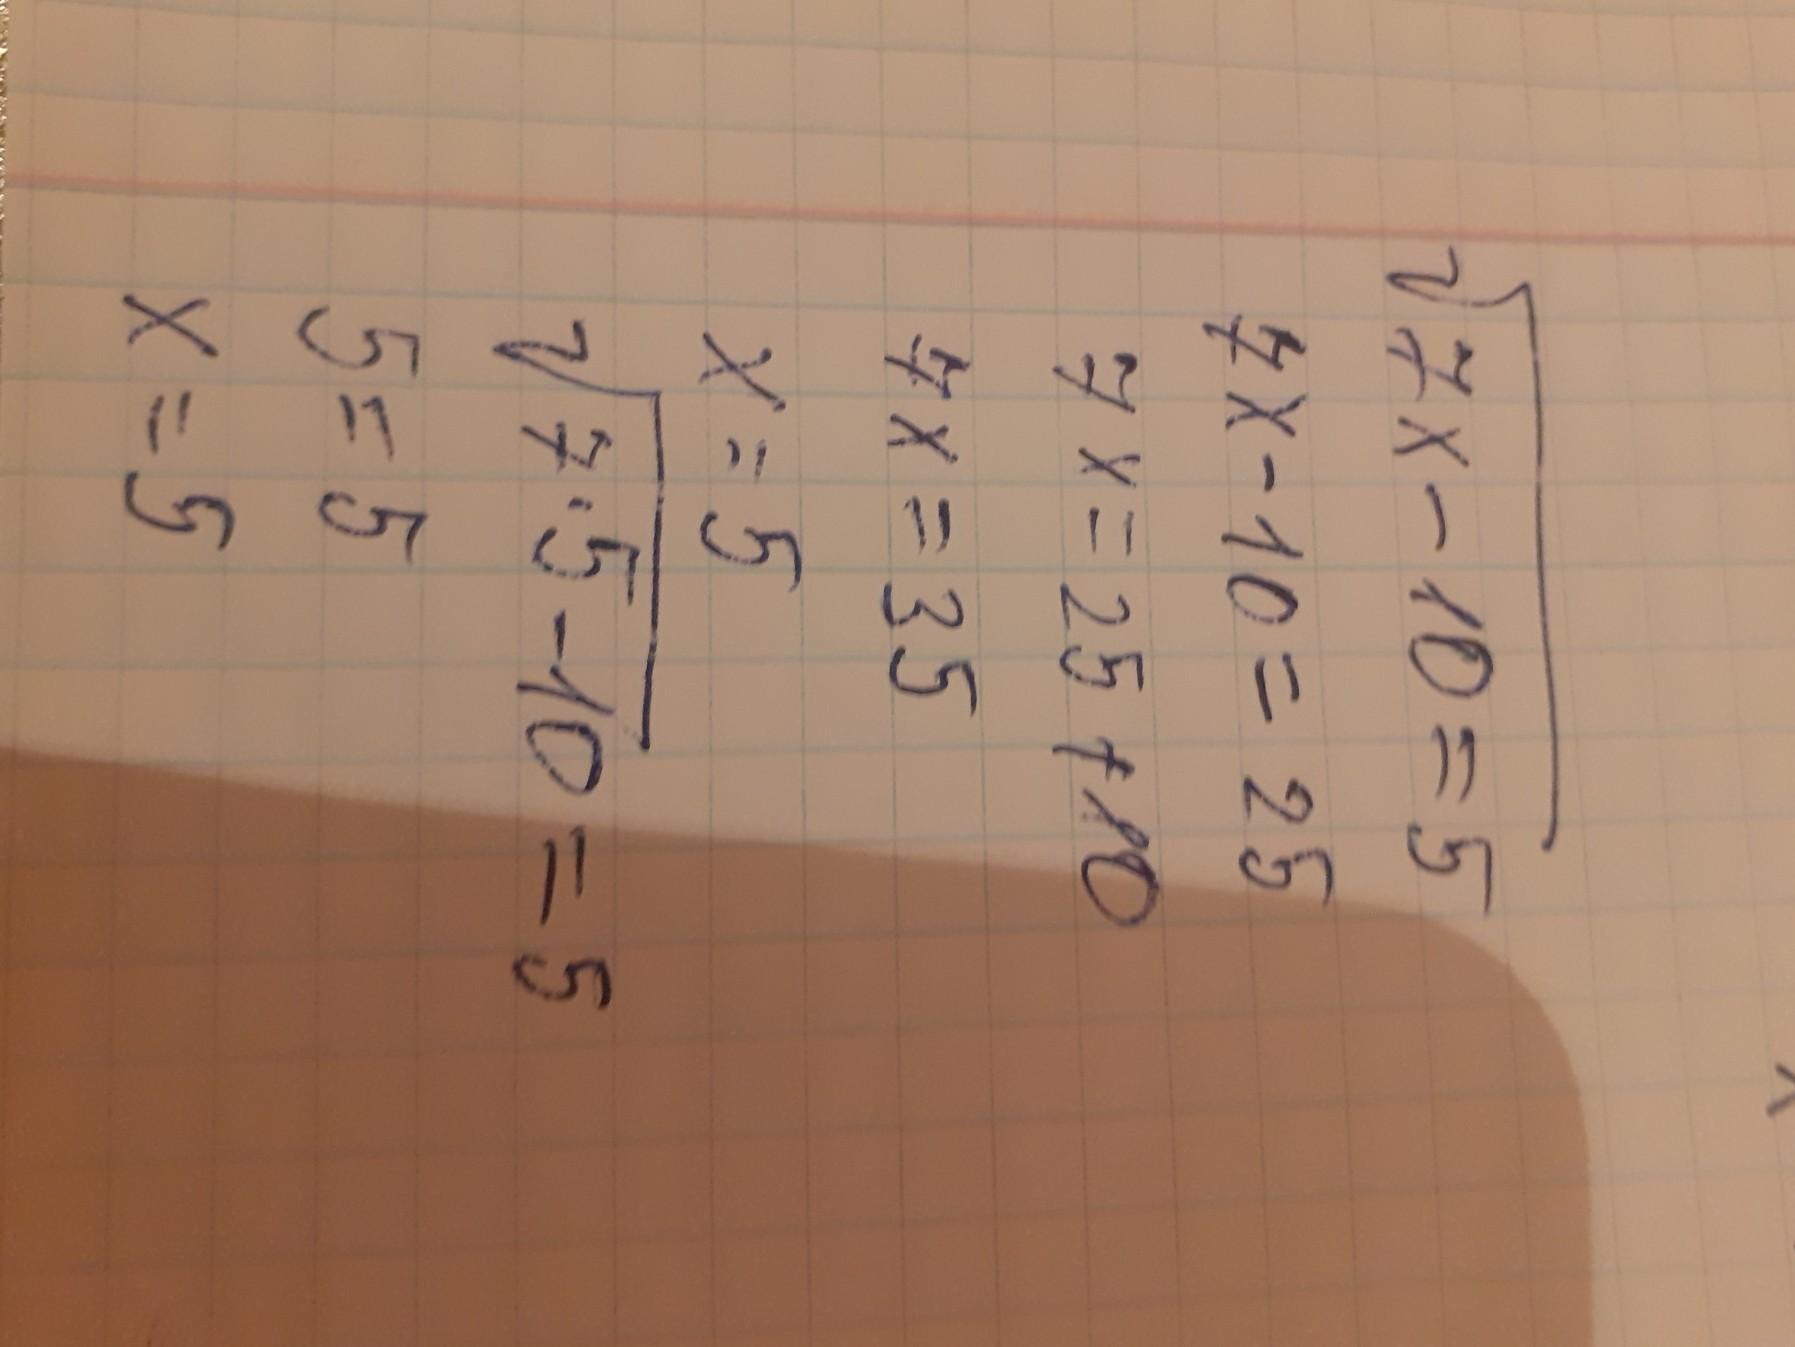 √7x-10=5
7x-10=25
7x=25+10
7x=35
x=5
√7·5-10=5
5=5
x=5